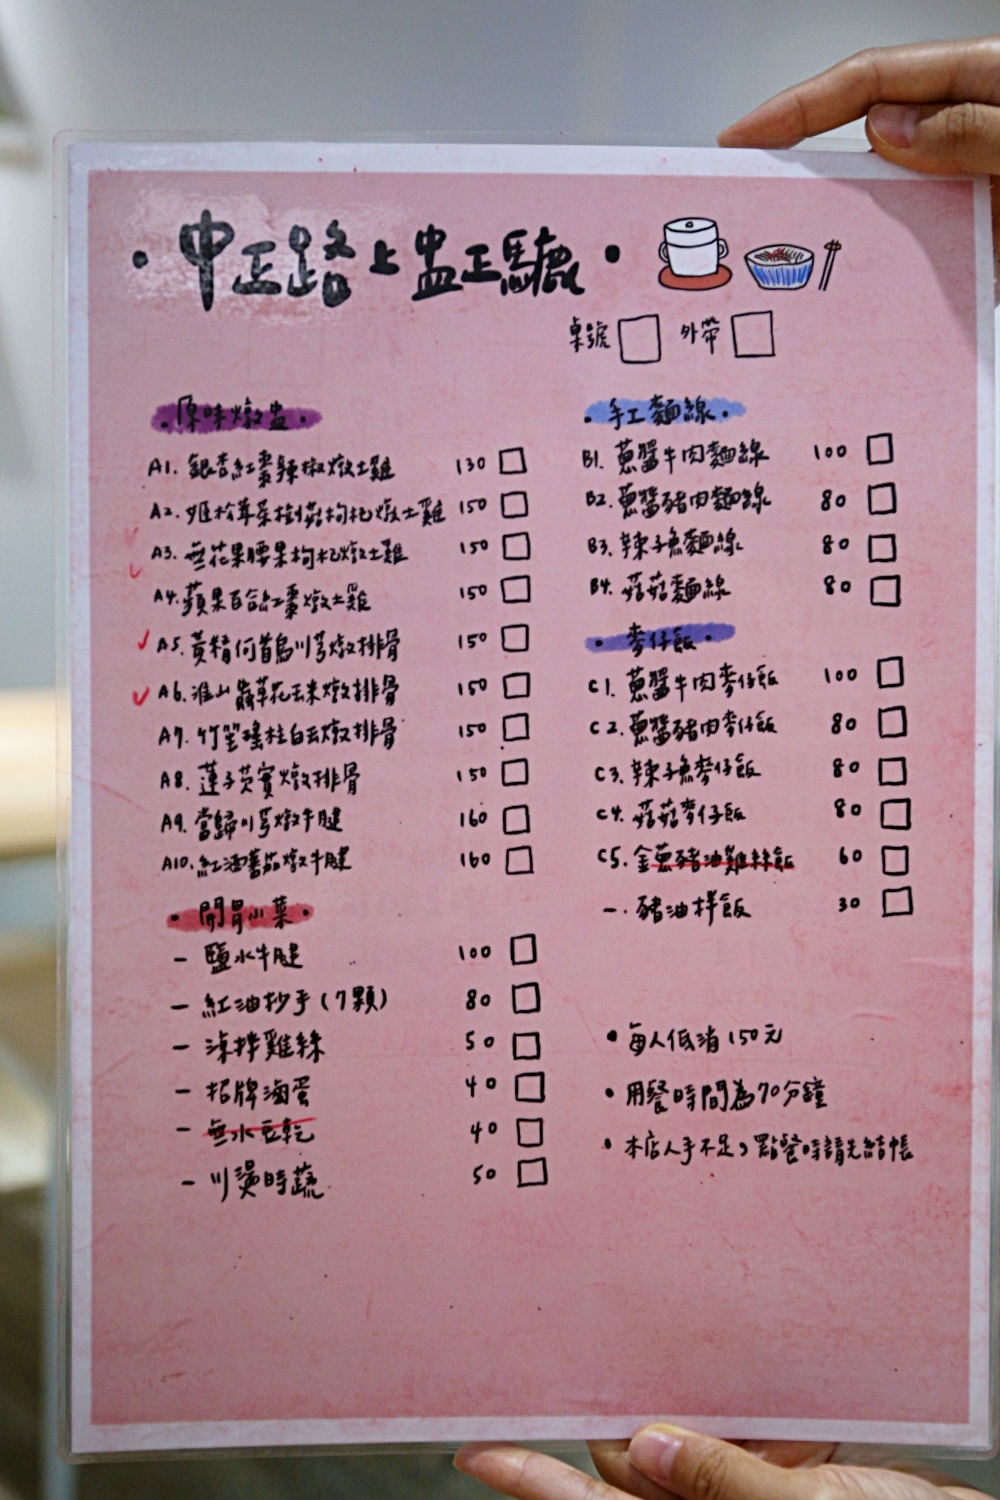 ·中正路上盅正驢·
桌號 外帶
·原味燉盅·
A1. 銀杏紅棗辣椒燉土雞 130
A2. 姬松茸茶樹菇枸杞燉土雞 150
A3. 無花果腰果枸杞燉土雞 150
A4. 蘋果百合紅棗燉土雞 150
A5. 黃精何首烏川芎燉排骨 150
A6. 淮山蟲草花玉米燉排骨 150
A7. 竹笙瑤柱白玉燉排骨 150
A8. 蓮子芡實燉排骨 150
A9. 當歸川芎燉牛腱 160
A10. 紅酒蕃茄燉牛腱 160
·開胃小菜·
- 鹽水牛腱 100
- 紅油抄手(7顆) 80
- 涼拌雞絲 50
- 招牌滷蛋 40
- 無水豆乾 40
- 川燙時蔬 50
·手工麵線·
B1. 蔥醬牛肉麵線 100
B2. 蔥醬豬肉麵線 80
B3. 辣子魚麵線 80
B4. 菇菇麵線 80
·麥仔飯·
C1. 蔥醬牛肉麥仔飯 100
C2. 蔥醬豬肉麥仔飯 80
C3. 辣子魚麥仔飯 80
C4. 菇菇麥仔飯 80
C5. 金蔥豬油雞絲飯 60
-. 豬油拌飯 30
• 每人低消150元
• 用餐時間為70分鐘
• 本店人手不足,點餐時請先結帳